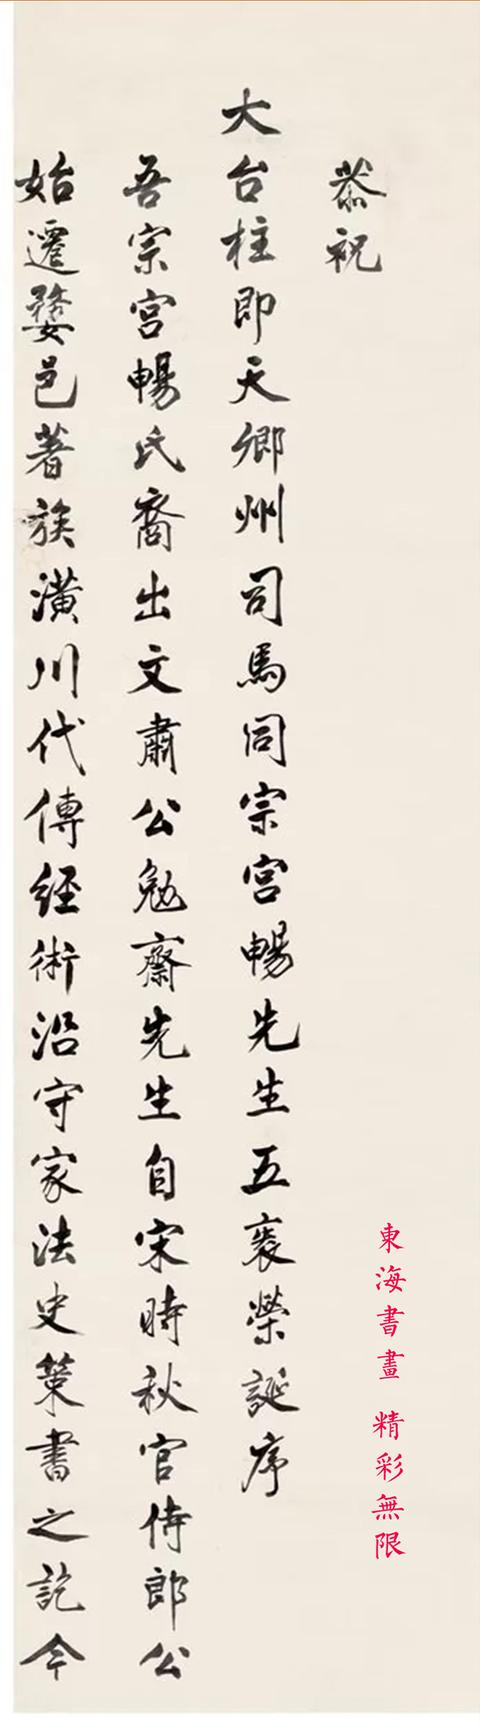 恭祝
大台柱即天卿州司馬同宗宫暢先生五袠榮誕序
吾宗宫暢氏裔出文肅公勉齋先生自宋時秋官侍郎公
始遷婺邑著族潢川代傳經術沿守家法史策書之訖今
東海書畫 精彩無限